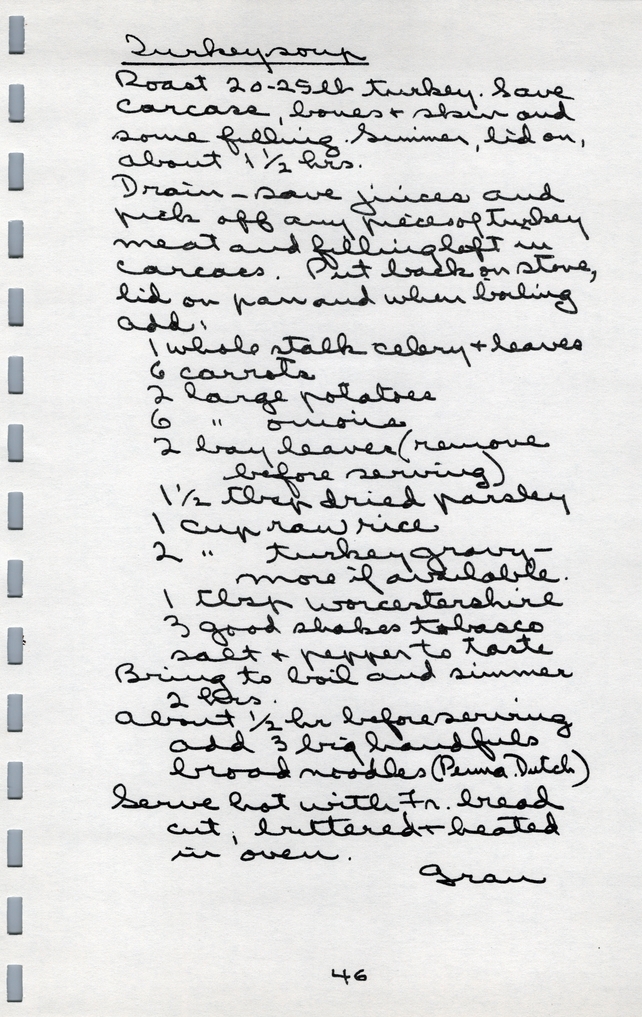 Turkey soup
Roast 20-25 lb turkey. Save
carcase, bones + skin and
some filling. Simmer, lid on,
about 1 1/2 hrs.
Drain - save juices and
pick off any pieces of turkey
meat and filling left in
carcacs. Put back on stove,
lid on pan and when boiling
add:
1 whole stalk celery + leaves
6 carrots
2 large potatoes
6 " onions
2 bay leaves (remove
before serving)
1 1/2 tbsp dried parsley
1 cup raw rice
2 " turkey gravy -
more if available.
1 tbsp worcestershire
3 good shakes tobasco
salt + pepper to taste
Bring to boil and simmer
2 hrs.
About 1/2 hr before serving
add 3 big handfuls
broad noodles (Penna. Dutch)
Serve hot with Fr. bread
cut, buttered + heated
in oven.
Gran
46